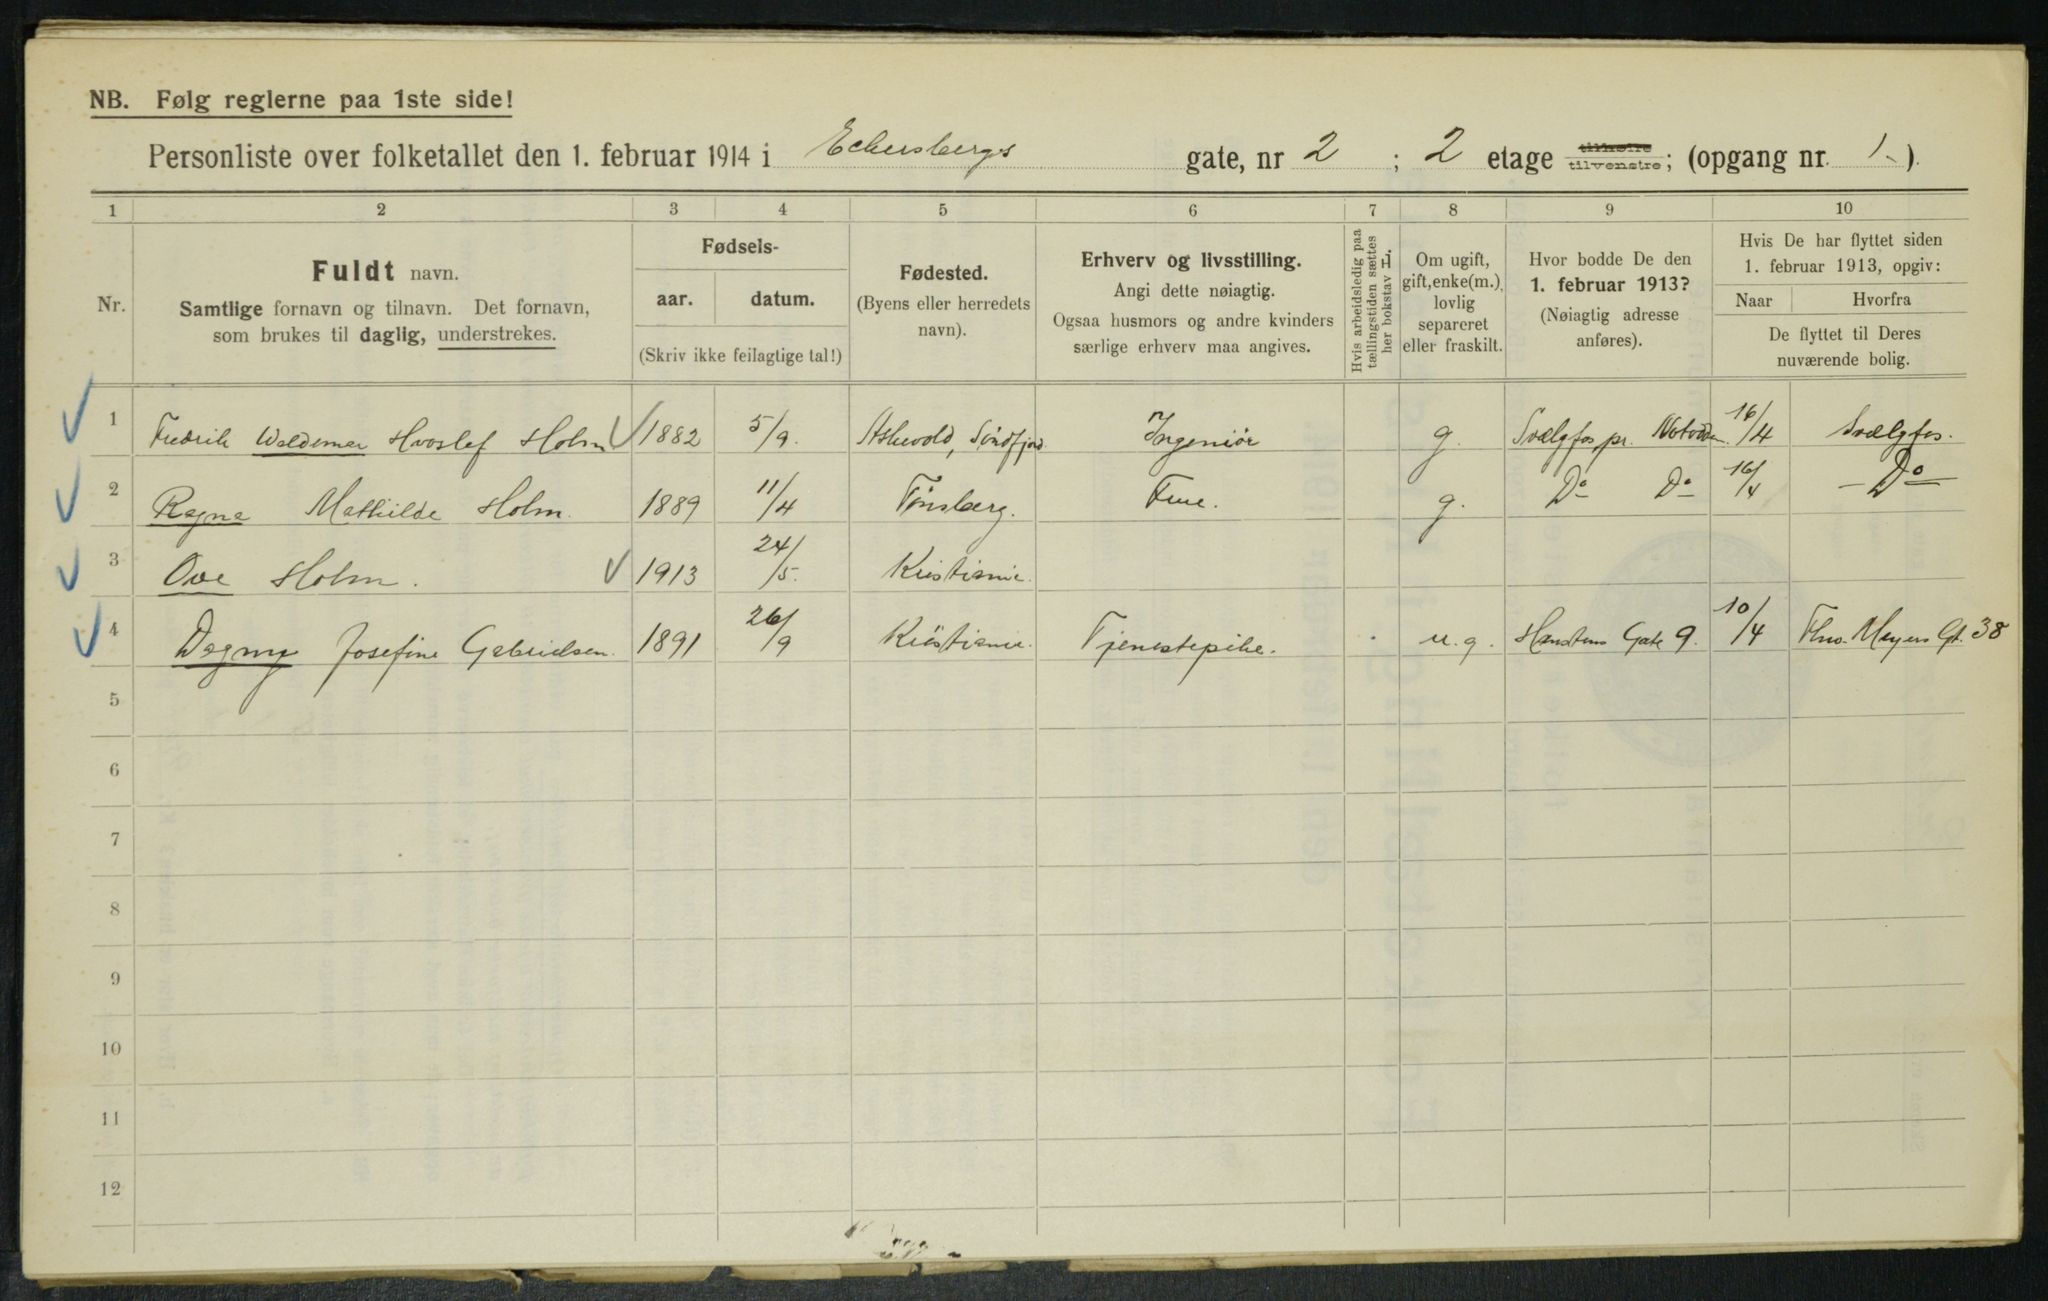 NB. Følg reglerne paa 1ste side!
Personliste over folketallet den 1. februar 1914 i Eckersbergs gate, nr 2 ; 2 etage tilhøire tilvenstre; (opgang nr. 1.).
1 2 3 4 5 6 7 8 9 10
Nr.
Fuldt navn.
Samtlige fornavn og tilnavn. Det fornavn,
som brukes til daglig, understrekes.
Fødsels-
aar. datum.
(Skriv ikke feilagtige tal!)
Fødested.
(Byens eller herredets
navn).
Erhverv og livsstilling.
Angi dette nøiagtig.
Ogsaa husmors og andre kvinders
særlige erhverv maa angives.
Hvis arbeidsledig paa
tællingstiden sættes
her bokstav L.
Om ugift,
gift, enke(m.),
lovlig
separeret
eller fraskilt.
Hvor bodde De den
1. februar 1913?
(Nøiagtig adresse
anføres).
Hvis De har flyttet siden
1. februar 1913, opgiv:
Naar Hvorfra
De flyttet til Deres
nuværende bolig.
1 Fredrik Waldemar Hvoslef Holm 1882 5/9. Askevold, Söndfjord Ingeniör g. Svælgfos pr. Notodden. 16/4 Svælgfos.
2 Ragna Mathilde Holm. 1889 11/4 Tönsberg. Frue. g. Do Do 16/4 — Do —
3 Ove Holm. 1913 24/5. Kristiania.
4 Dagny Josefine Gabrielsen. 1891 26/9 Kristiania. Tjenestepike. u.g. Gate 9. 10/4 Thv. Meyers Gt. 38
5
6
7
8
9
10
11
12